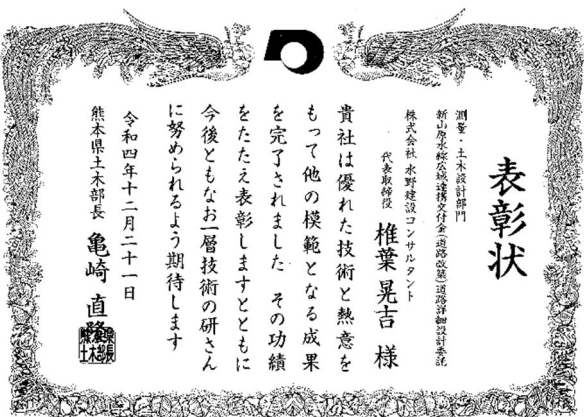 表彰状
測量・土木設計部門
新山原水線広域連携交付金(道路改築)道路詳細設計委託
株式会社 水野建設コンサルタント
代表取締役 椎葉 晃吉 様
貴社は優れた技術と熱意を
もって他の模範となる成果
を完了されました その功績
をたたえ表彰しますとともに
今後ともなお一層技術の研さん
に努められるよう期待します
令和四年十二月二十一日
熊本県土木部長 亀崎 直隆